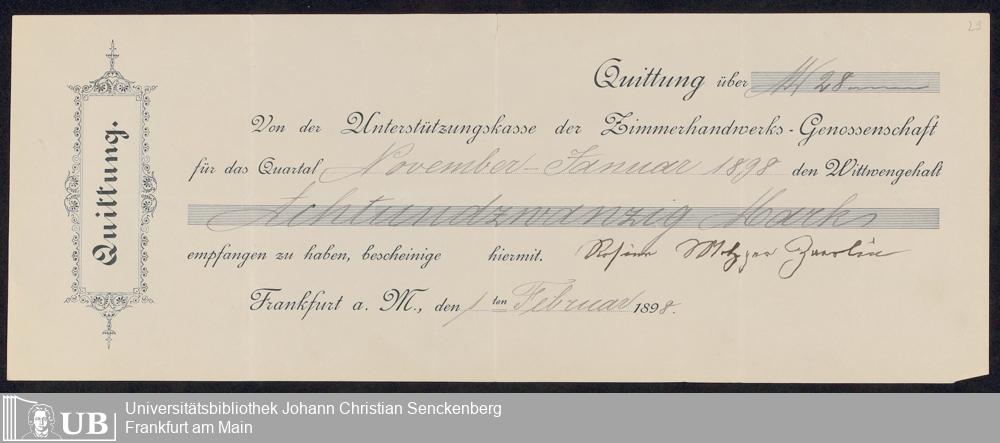 29
Quittung.
Quittung über M 28
Von der Unterstützungskasse der Zimmerhandwerks-Genossenschaft
für das Quartal November-Januar 1898 den Wittwengehalt
Achtundzwanzig Mark
empfangen zu haben, bescheinige hiermit. Metzger
Frankfurt a. M., den 1 ten Februar 1898.
UB
Universitätsbibliothek Johann Christian Senckenberg
Frankfurt am Main